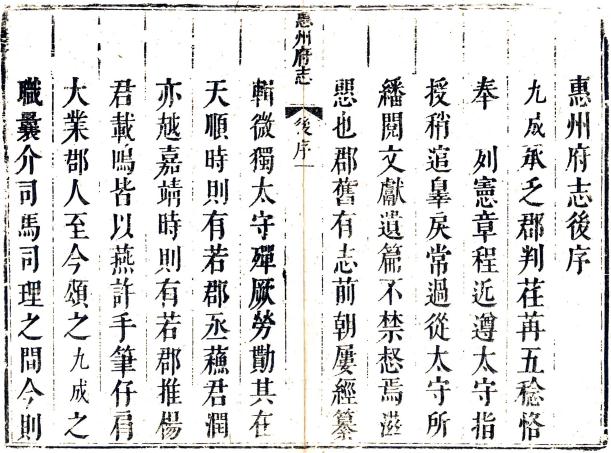 惠州府志後序
九成承乏郡判荏苒五稔恪
奉 列憲章程近遵太守指
授稍逭辠戾常過從太守所
繙閱文獻遺篇不禁惄焉滋
恧也郡舊有志前朝屢經纂
惠州府志 後序 一
輯微獨太守殫厥勞勩其在
天順時則有若郡丞蘓君潤
亦越嘉靖時則有若郡推楊
君載鳴皆以燕許手筆仔肩
大業郡人至今頌之九成之
職曩介司馬司理之間今則